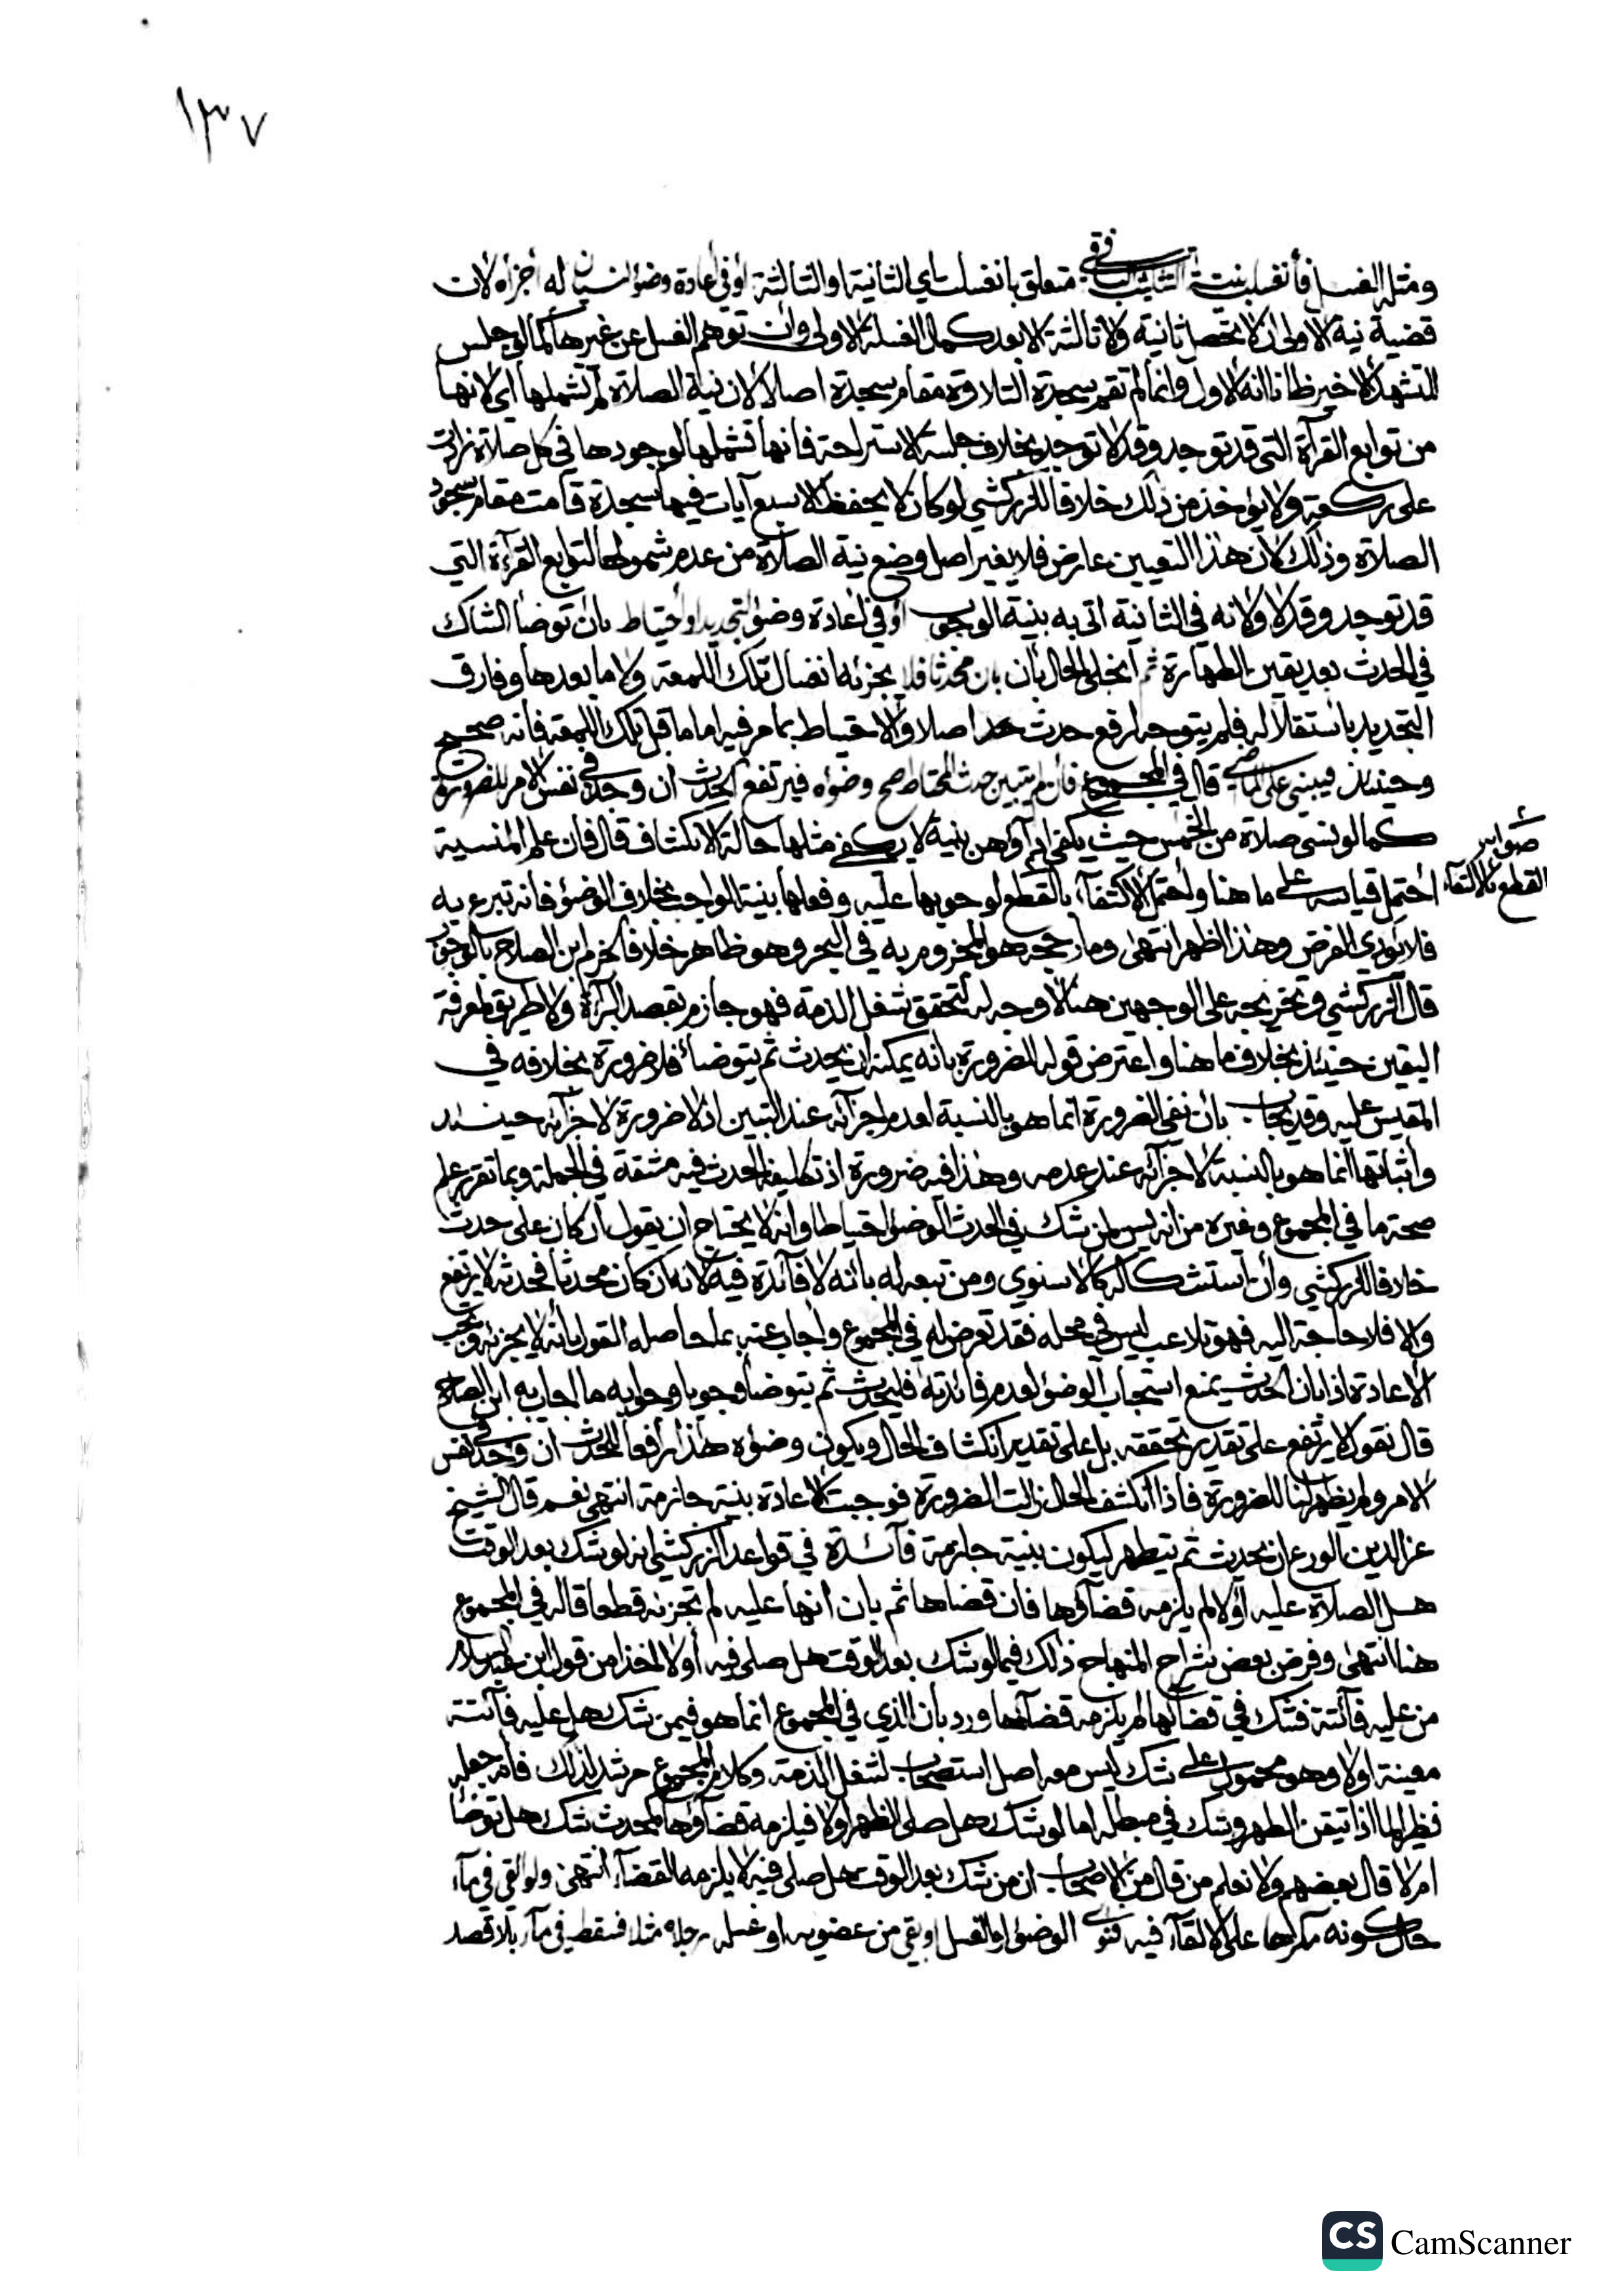 ١٣٧
ومثله الغسل فأنغسلت بنية التثليث متعلق بانغسلت اي الثانية او الثالثة او في اعادة وضوء لنسيان له أجزاه لان
قضية نية الاولى ان لا تحصل ثانية ولا ثالثة الا بعد كمال الغسلة الاولى وان توهم الغسل عن غيرها كما لو جلس
للتشهد الاخير ظانا انه الاول وانما لم تقم سجدة التلاوة مقام سجدة اصلا لان نية الصلاة لم تشملها اي لانها
من توابع القرآة التي قد توجد وقد لا توجد بخلاف جلسة الاستراحة فانها تشملها لوجودها في كل صلاة زادت
على ركعة ولا يؤخذ من ذلك خلافا للزركشي لو كان لا يحفظ الا سبع آيات فيها سجدة قامت مقام سجود
الصلاة وذلك لان هذا التعيين عارض فلا يغير اصل وضع نية الصلاة من عدم شمولها لتوابع القرآة التي
قد توجد وقد لا ولانه في الثانية اتى به بنية الوجوب او في اعادة وضوء لتجديد او احتياط بان توضأ الشاك
في الحدث بعد يقين الطهارة ثم انجلى الحال بأن بان محدثا فلا يجزئه انغسال تلك اللمعة ولا ما بعدها وفارق
التجديد باستقلاله فلم يتوجه لرفع حدث اصلا والاحتياط بما مر فيه اما ما قبل تلك اللمعة فانه صحيح
وحينئذ فيبنى على الماضي قال في المجموع فان لم يتبين حدث المحتاط صح وضوءه فيرتفع الحدث ان وجد في نفس الامر للضرورة
كما لو نسي صلاة من الخمس حيث يكفي اداؤهن بنية لا يكفي مثلها حالة الانكشاف قال فان علم المنسية
احتمل قياسه على ما هنا واحتمل الاكتفآء بالقطع لوجوبها عليه وفعلها بنية الواجب بخلاف الوضوء فانه تبرع به
صوابه
القطع بالاكتفآء
فلا يؤدي الفرض وهذا اظهر انتهى وما رجحه هو المجزوم به في البحر وهو ظاهر خلافا لجزم ابن الصلاح بالوجوب
قال الزركشي وتخريجه على الوجهين هنا لا وجه له لتحقق شغل الذمة فهو جازم بقصد البرآة ولا طريق لمعرفة
اليقين حينئذ بخلاف ما هنا واعترض قوله للضرورة بانه يمكنه ان يحدث ثم يتوضأ فلا ضرورة بخلافه في
المقيس عليه وقد يجاب بان نفي الضرورة انما هو بالنسبة لعدم اجزآئه عند التبين اذ لا ضرورة لاجزآئه حينئذ
واثباتها انما هو بالنسبة لاجزآئه عند عدمه وهذا فيه ضرورة اذ تكليفه الحدث فيه مشقة في الجملة وبما تقرر علم
صحة ما في المجموع وغيره من انه يسن لمن شك في الحدث الوضوء احتياطا وانه لا يحتاج ان يقول ان كان على حدث
خلافا للزركشي وان استشكاله كالاسنوي ومن تبعه له بانه لا فآئدة فيه لانه ان كان محدثا فحدثه لا يرتفع
والا فلا حاجة اليه فهو تلاعب ليس في محله فقد تعرض له في المجموع واجاب عنه بما حاصله القول بانه لا يجزئه وتجب
الاعادة اذا بان الحدث يمنع استحباب الوضوء لعدم فائدته فليحدث ثم يتوضأ وجوبا وجوابه ما اجاب به ابن الصلاح
قال نقول لا يرتفع على تقدير تحققه بل على تقدير انكشاف الحال ويكون وضوءه هذا رافعا للحدث ان وجد في نفس
الامر ولم يظهر لنا للضرورة فاذا انكشف الحال زالت الضرورة فوجبت الاعادة بنية جازمة انتهى نعم قال الشيخ
عز الدين الورع ان يحدث ثم يتطهر ليكون بنية جازمة فآئدة في قواعد الزركشي انه لو شك بعد الوقت
هل الصلاة عليه أو لا لم يلزمه قضآؤها فان قضاها ثم بان انها عليه لم تجزئه قطعا قاله في المجموع
هنا انتهى وفرض بعض شراح المنهاج ذلك فيما لو شك بعد الوقت هل صلى فيه أو لا اخذا من قول ابن عبد السلام
من عليه فآئتة فشك في قضائها لم يلزمه قضآؤها ورد بان الذي في المجموع انما هو فيمن شك هل عليه فآئتة
معينة او لا وهو محمول على شك ليس معه اصل استصحاب لشغل الذمة وكلام المجموع مرشد لذلك فانه جعله
نظير لما اذا تيقن الطهر وشك في مبطله اما لو شك هل صلى الظهر او لا فيلزمه قضآؤها كمحدث شك هل توضأ
ام لا قال بعضهم ولا نعلم من قال من الاصحاب ان من شك بعد الوقت هل صلى فيه لا يلزمه القضآء انتهى ولو القي في مآء
حال كونه مكرها على الالقآء فيه فنوى الوضوء او الغسل او بقي من عضويه او غسله رجله مثلا فسقط في مآء بلا قصد
CS CamScanner